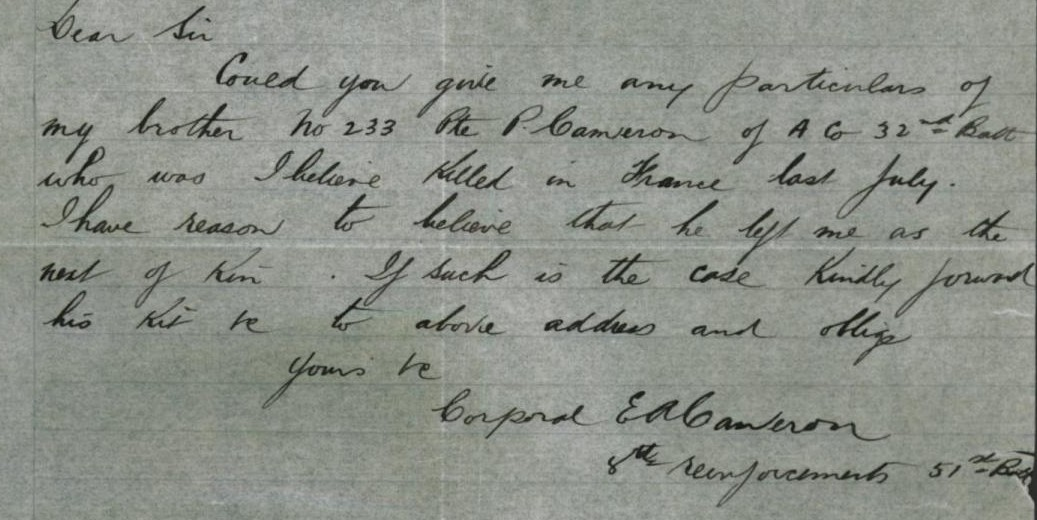 Dear Sir
Could you give me any particulars of
my brother No 233 Pte P. Cameron of A Co 32nd Batt
who was I believe Killed in France last July.
I have reason to believe that he left me as the
next of Kin. If such is the case Kindly forward
his Kit &c to above address and oblige
yours &c
Corporal E A Cameron
8th reinforcements 51st Batt